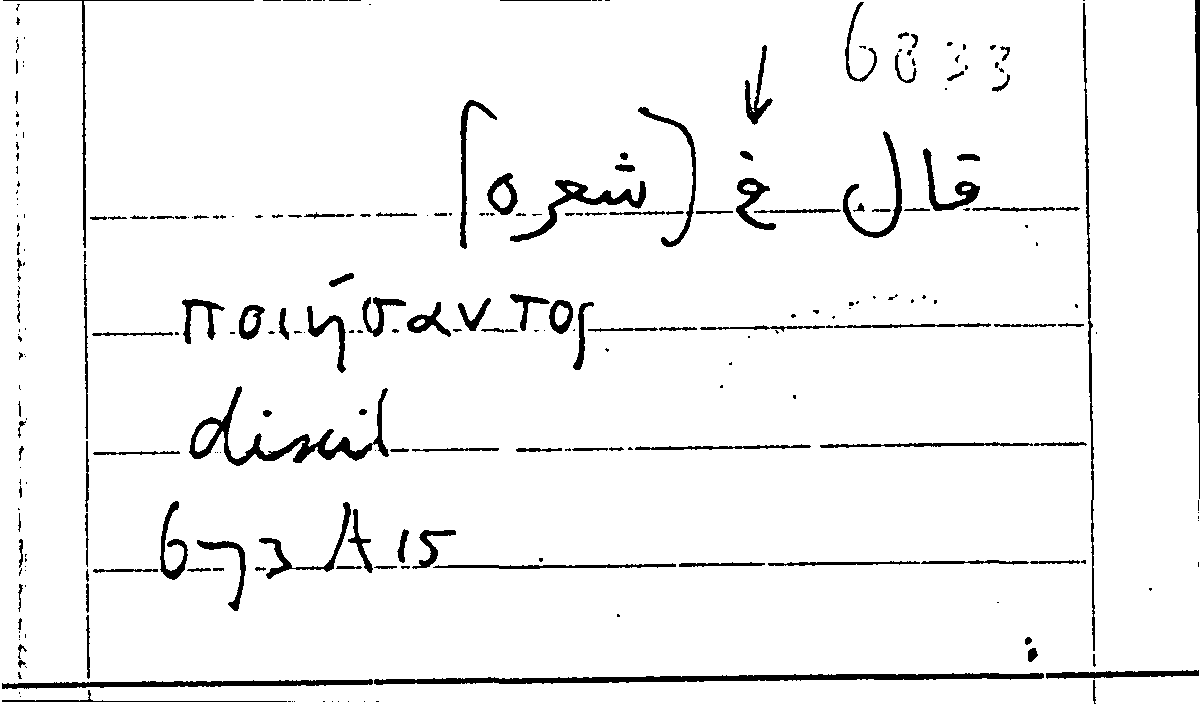 6833
↓
قال في (شعره]
ποιήσαντος
673 A 15